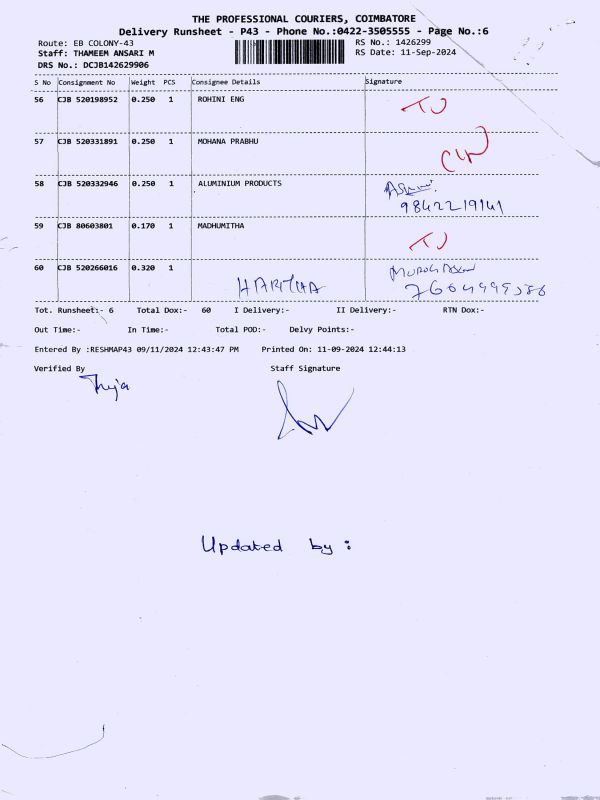 THE PROFESSIONAL COURIERS, COIMBATORE
Delivery Runsheet - P43 - Phone No.:0422-3505555 - Page No.:6
Route: EB COLONY-43 RS No.: 1426299
Staff: THAMEEM ANSARI M RS Date: 11-Sep-2024
DRS No.: DCJB142629906
S No Consignment No Weight PCS Consignee Details Signature
56 CJB 520198952 0.250 1 ROHINI ENG TJ
57 CJB 520331891 0.250 1 MOHANA PRABHU
58 CJB 520332946 0.250 1 ALUMINIUM PRODUCTS
9842219141
59 CJB 80603801 0.170 1 MADHUMITHA TJ
60 CJB 520266016 0.320 1 HARITHA
Tot. Runsheet:- 6 Total Dox:- 60 I Delivery:- II Delivery:- RTN Dox:-
Out Time:- In Time:- Total POD:- Delvy Points:-
Entered By :RESHMAP43 09/11/2024 12:43:47 PM Printed On: 11-09-2024 12:44:13
Verified By Staff Signature
Updated by :